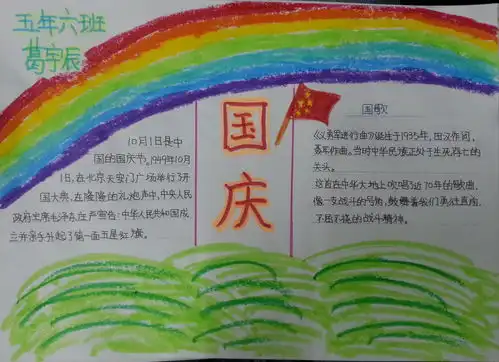 五年六班
葛宇辰
国庆
10月1日是中
国的国庆节。1949年10月
1日,在北京天安门广场举行了开
国大典,在隆隆的礼炮声中,中央人民
政府主席毛泽东庄严宣告:中华人民共和国成
立并亲手升起了第一面五星红旗。
国歌
《义勇军进行曲》诞生于1935年,田汉作词,
聂耳作曲。当时中华民族正处于生死存亡的
关头。
这首在中华大地上吹唱了近70年的歌曲,
像一支战斗的号角,鼓舞着我们勇往直前,
不屈不挠的战斗精神。